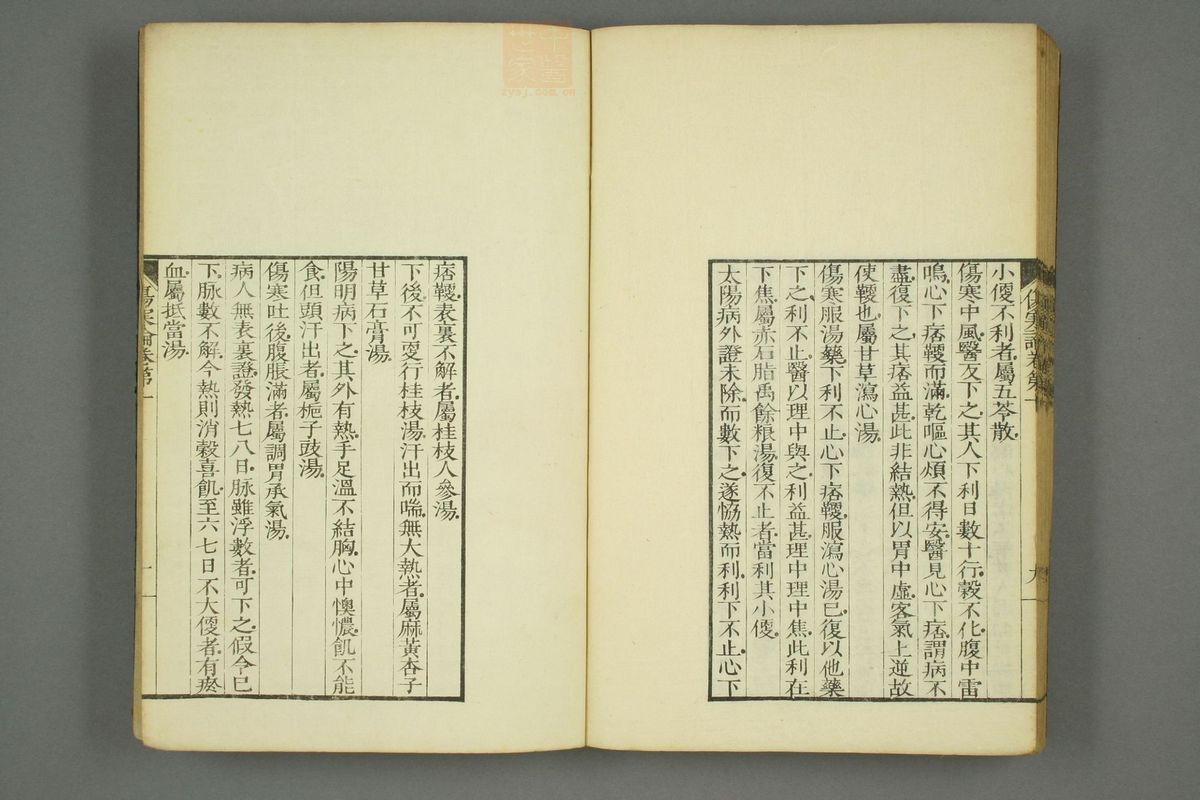 小便不利者屬五苓散
傷寒中風醫反下之其人下利日數十行穀不化腹中雷
鳴心下痞鞕而滿乾嘔心煩不得安醫見心下痞謂病不
盡復下之其痞益甚此非結熱但以胃中虛客氣上逆故
使鞕也屬甘草瀉心湯
傷寒服湯藥下利不止心下痞鞕服瀉心湯已復以他藥
下之利不止醫以理中與之利益甚理中理中焦此利在
下焦屬赤石脂禹餘粮湯復不止者當利其小便
太陽病外證未除而數下之遂恊熱而利利下不止心下
痞鞕表裏不解者屬桂枝人參湯
下後不可更行桂枝湯汗出而喘無大熱者屬麻黃杏子
甘草石膏湯
陽明病下之其外有熱手足溫不結胸心中懊憹飢不能
食但頭汗出者屬梔子豉湯
傷寒吐後腹脹滿者屬調胃承氣湯
病人無表裏證發熱七八日脉雖浮數者可下之假令已
下脉數不解今熱則消穀喜飢至六七日不大便者有瘀
血屬抵當湯
傷寒論卷第
zysj.com.cn